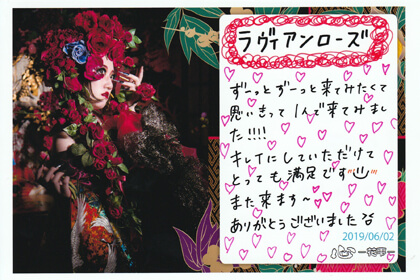 ラヴィアンローズ
ずーっとずーっと来てみたくて
思いきって1人で来てみまし
た!!!!
キレイにしていただけて
とっても満足です
また来ます〜
ありがとうございました
2019/06/02